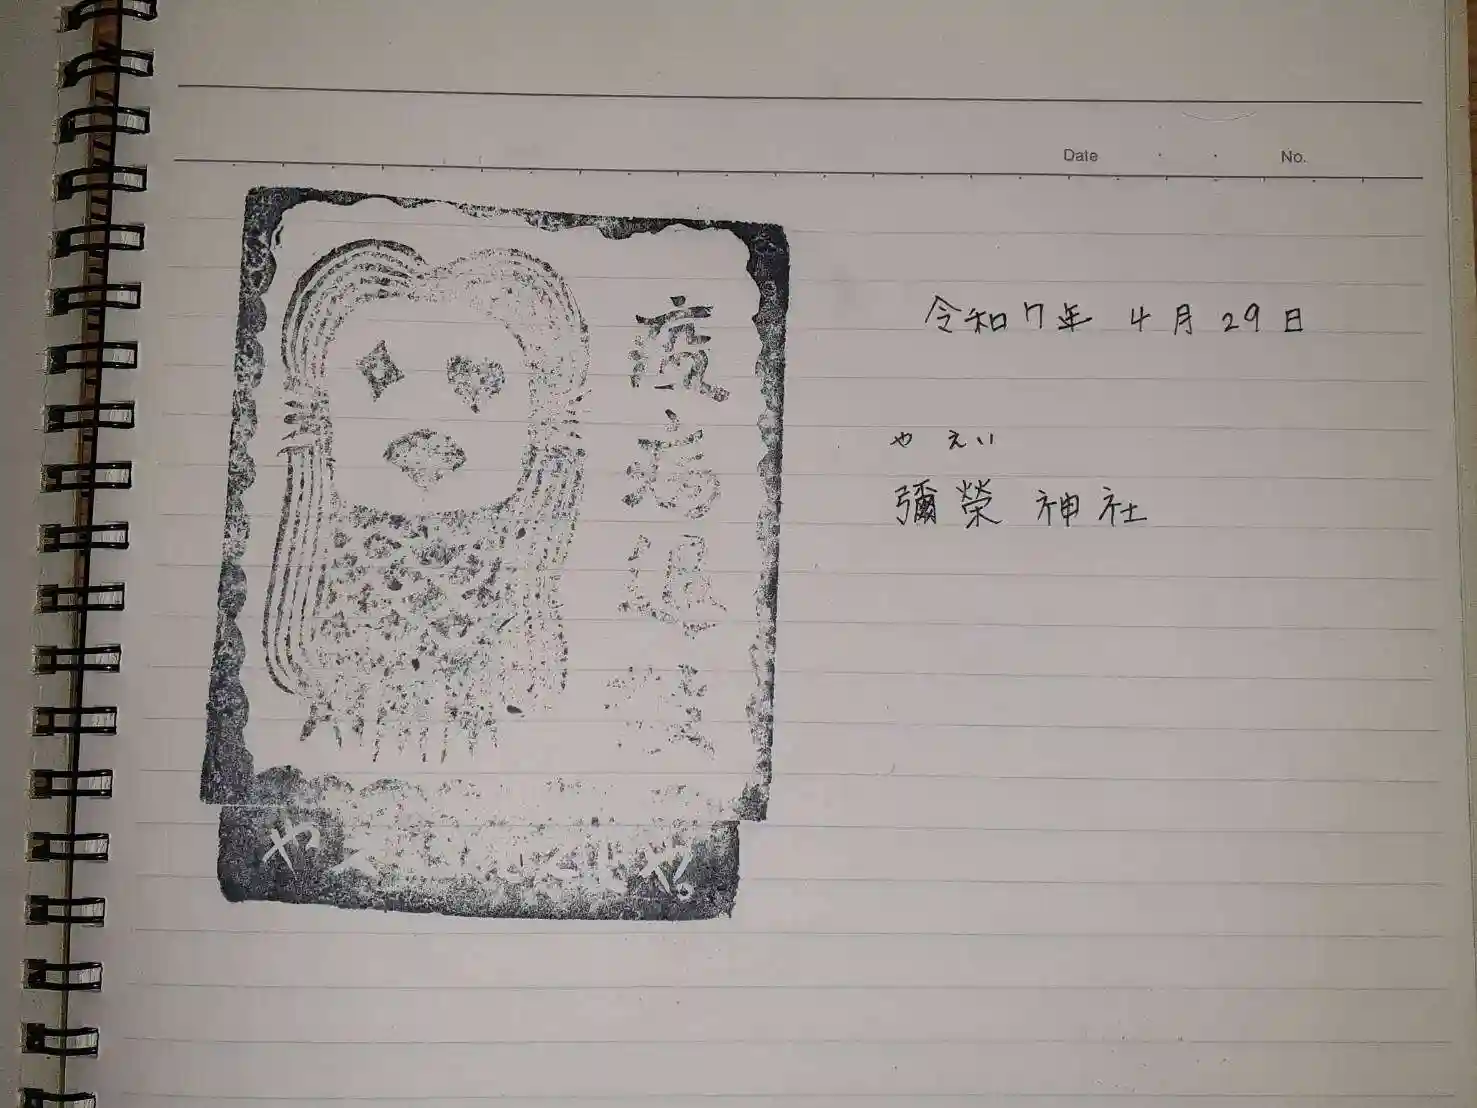 Date ・ ・ No.
令和7年 4月29日
やえい
彌榮神社
疫病退